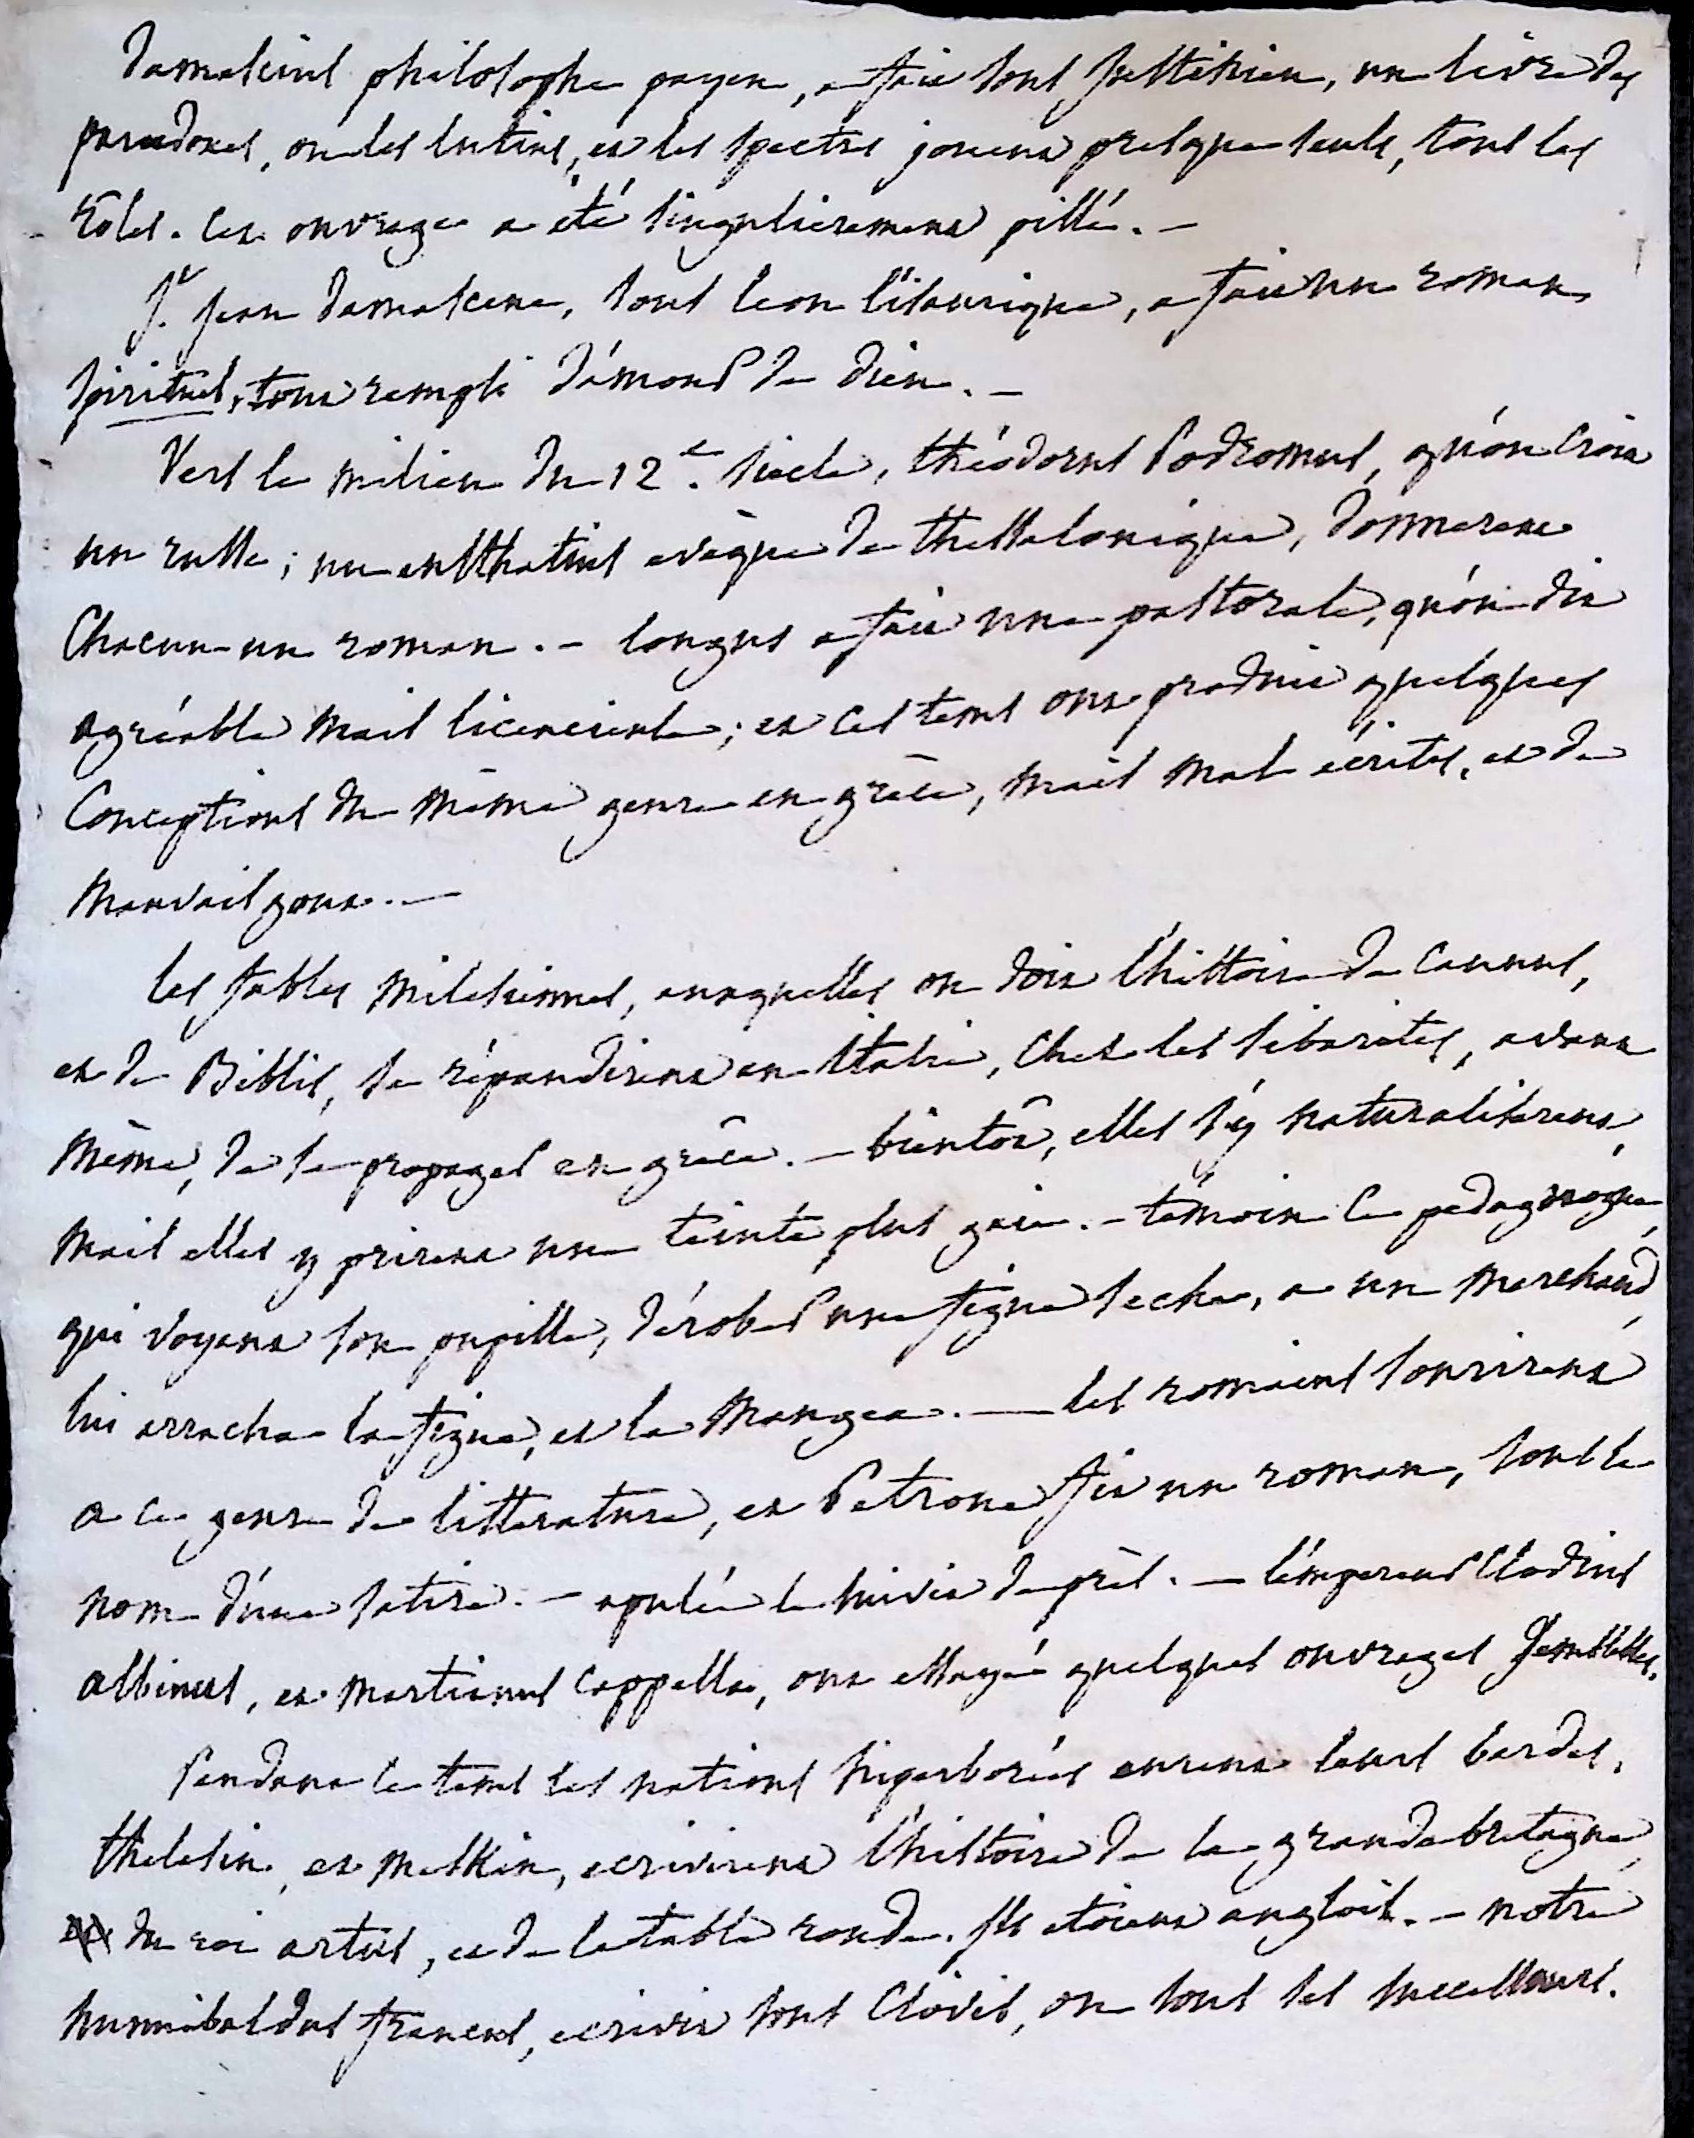 Damascius philosophe payen, a fait sous Justinien, un livre des
paradoxes, ou les lutins, et les spectres jouent presque seuls, tous les
rôles. Cet ouvrage a été singulierement pillé. —
St. Jean Damascene, sous Leon l'isaurique, a fait un roman
spirituel, tout rempli d'amour de Dieu. —
Vers le milieu du 12e. siecle, théodorus Podromus, qu'on croit
un russe ; un eusthatius evêque de thessalonique, donnerent
Chacun un roman. — longus a fait une pastorale, qu'on dit
agréable mais licencieuse ; et ces tems ont produit quelques
Conceptions du même genre en grèce, mais mal écrites, et de
mauvais gout. —
les fables milesiennes, auxquelles on doit l'histoire de Caunus,
et de Biblis, se répandirent en Italie, chez les sibarites, avant
même, de se propager en grèce. — bientôt, elles s'y naturaliserent,
mais elles y prirent une teinte plus gaie. — témoin le pedagogue,
qui voyant son pupille, dérober une figue seche, a un marchand,
lui arracha la figue, et la mangea. — les romains sourirent
a ce genre de litterature, et Petrone fit un roman, sous le
nom d'une satire. — apulée le suivit de près. — l'empereur Clodius
albinus, et martianus cappella, ont essayé quelques ouvrages semblables.
Pendant ce tems les nations hiperborées eurent leurs bardes.
thelesin, et melkin, ecrivirent l'histoire de la grande bretagne,
du roi artus, et de la table ronde. Ils etoient anglois. — notre
hunnibaldus francus, ecrivit sous Clovis, ou sous ses successeurs.